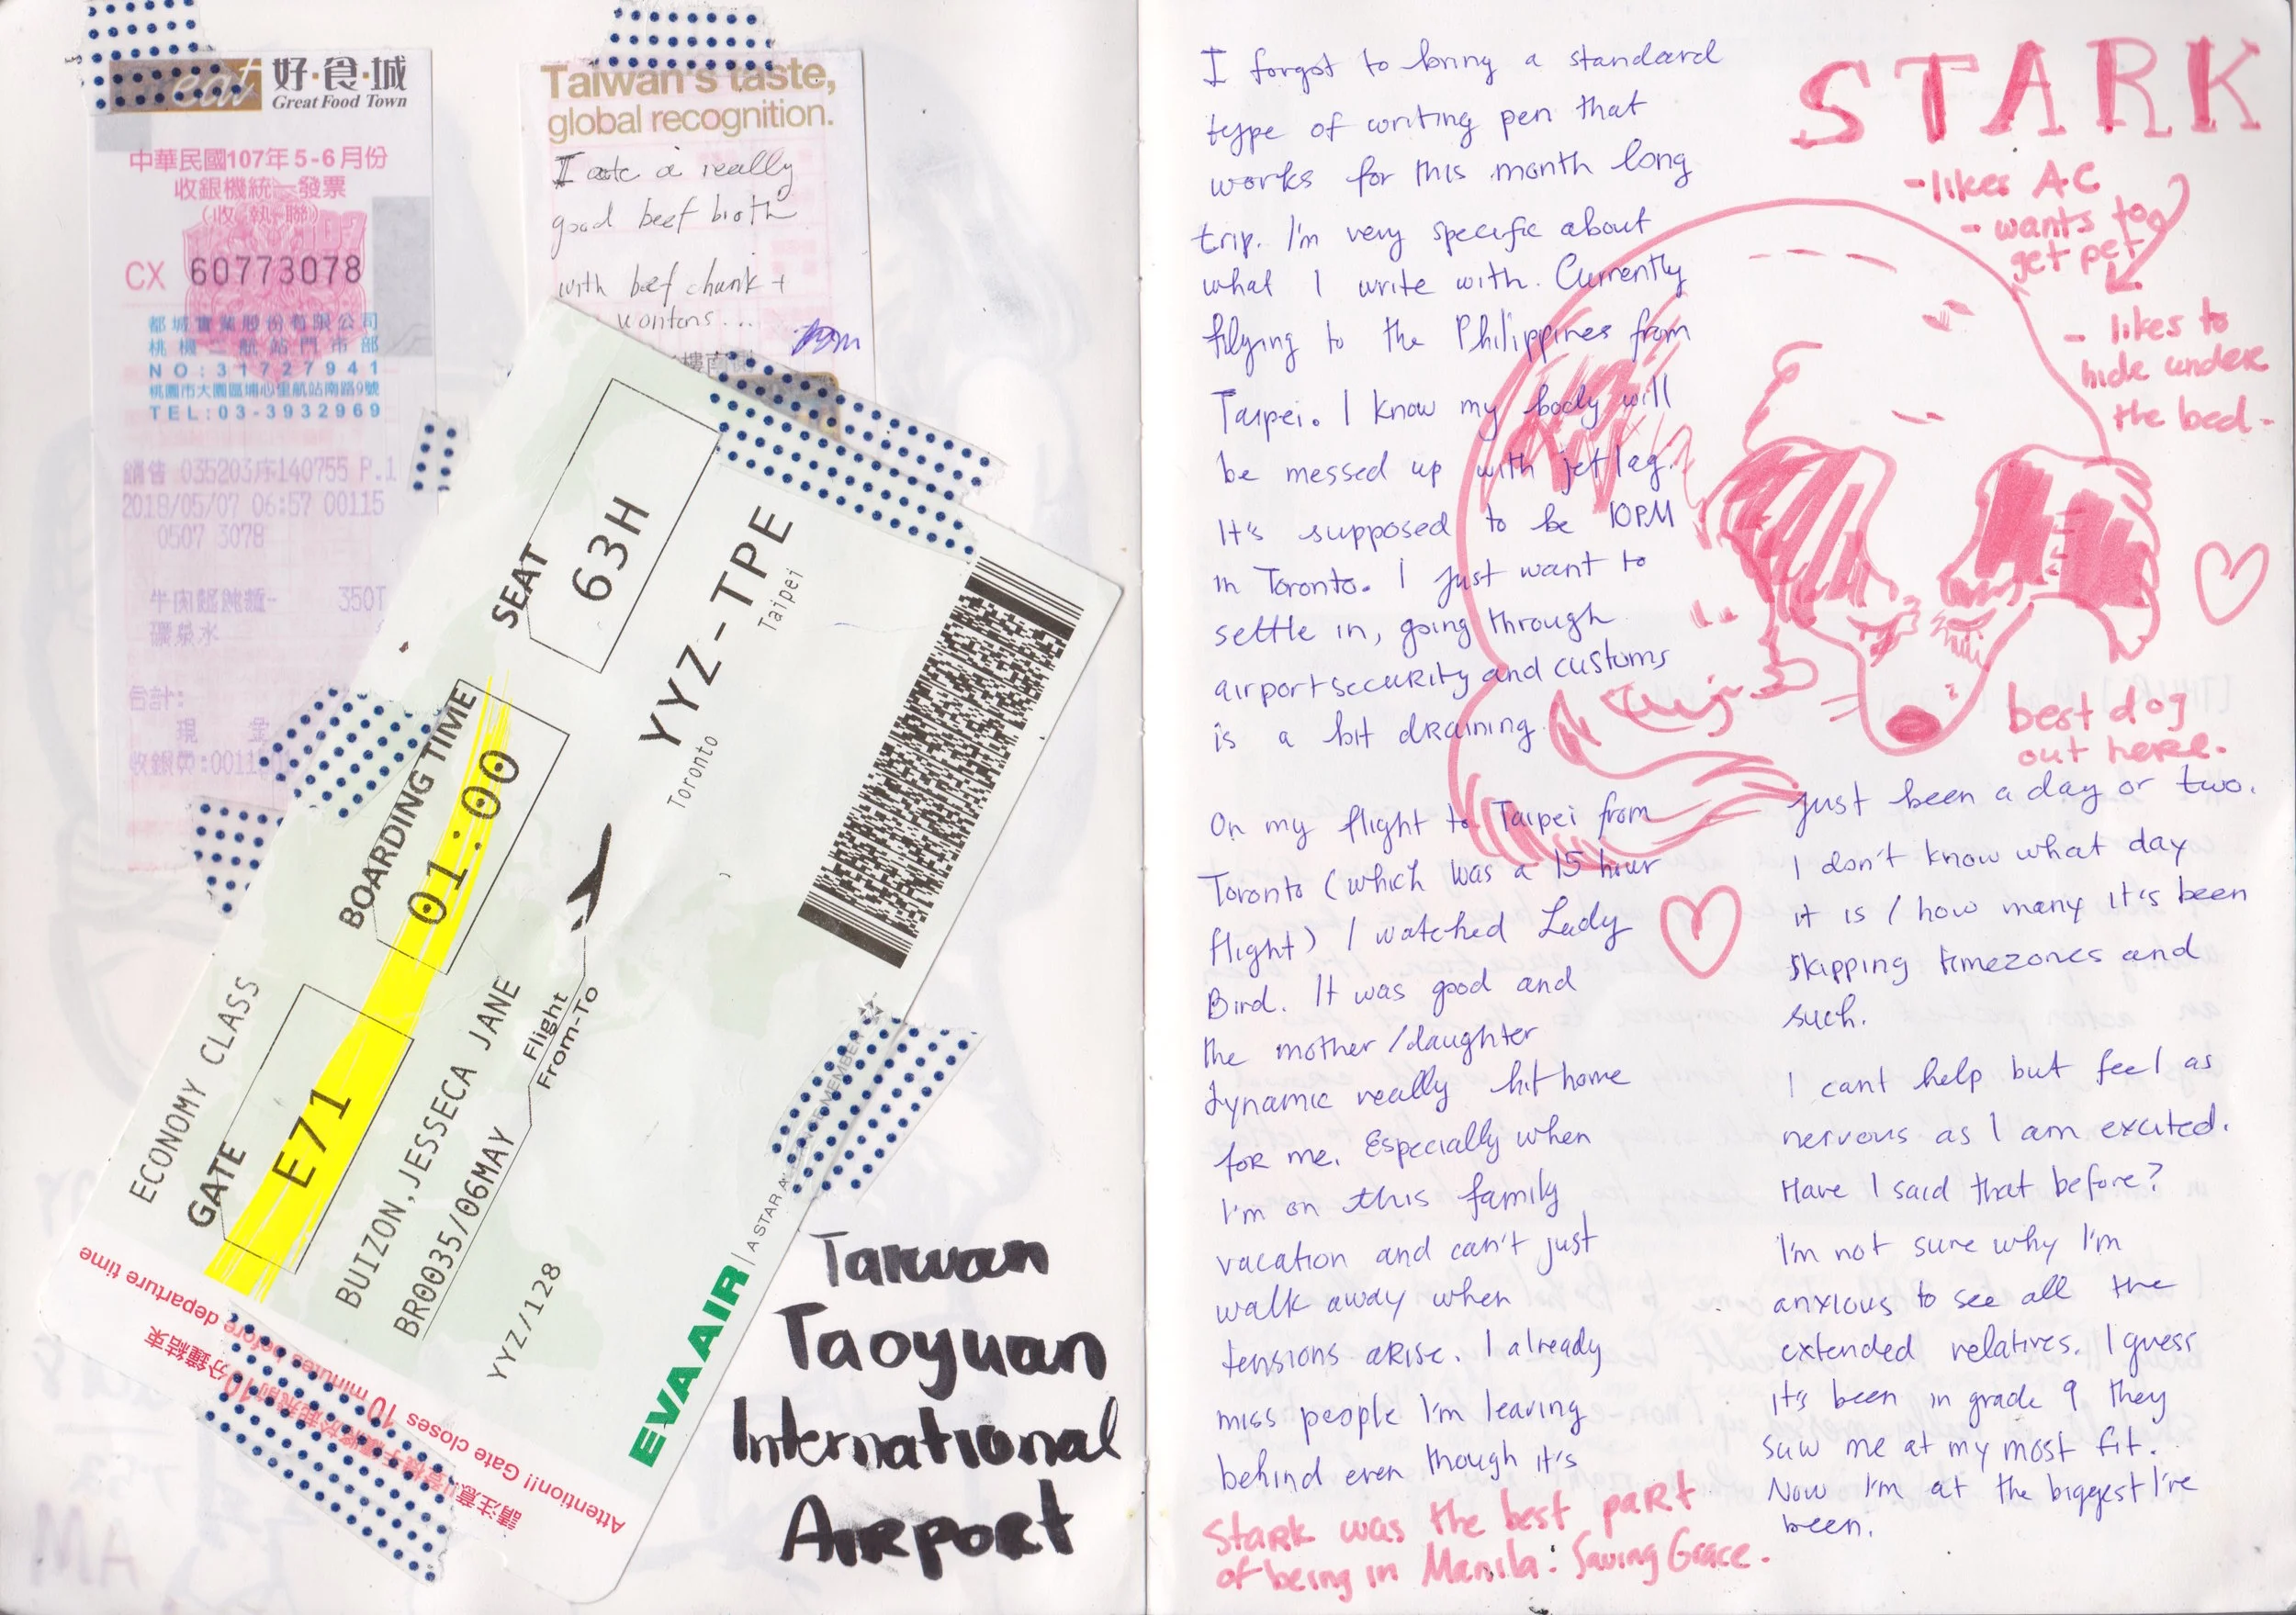 eat 好·食·城
Great Food Town
中華民國107年5-6月份
收銀機統一發票
(收執聯)
CX 60773078
都城實業股份有限公司
桃機二航站門市部
NO:31727941
桃園市大園區埔心里航站南路9號
TEL:03-3932969
銷售 035203序140755 P.1
2018/05/07 06:57 00115
0507 3078
牛肉餛飩麵- 350T
礦泉水
合計:
現 金
Taiwan's taste,
global recognition.
I ate a really
good beef broth
with beef chunk +
wontons...
樓南側
ECONOMY CLASS
GATE
E71
BOARDING TIME
01:00
SEAT
63H
BUIZON,JESSECA JANE
BR0035/06MAY
Flight
From-To
YYZ-TPE
Toronto
Taipei
YYZ/128
EVA AIR | A STAR ALLIANCE MEMBER
請注意
Attention!! Gate closes 10 minutes before departure time
Taiwan
Taoyuan
International
Airport
I forgot to bring a standard
type of writing pen that
works for this month long
trip. I'm very specific about
what I write with. Currently
filying to the Philippines from
Taipei. I know my body will
be messed up with jet lag.
It's supposed to be 10PM
in Toronto. I just want to
settle in, going through
airport security and customs
is a bit draining.
On my flight to Taipei from
Toronto (which was a 15 hour
flight) I watched Lady
Bird. It was good and
the mother/daughter
dynamic really hit home
for me. Especially when
I'm on this family
vacation and can't just
walk away when
tensions arise. I already
miss people I'm leaving
behind even though it's
Stark was the best part
of being in Manila: Saving Grace.
STARK
- likes AC
- wants to
get pet
- likes to
hide under
the bed-
best dog
out here.
just been a day or two.
I don't know what day
it is / how many it's been
skipping timezones and
such.
I cant help but feel as
nervous as I am excited.
Have I said that before?
I'm not sure why I'm
anxious to see all the
extended relatives. I guess
it's been in grade 9 they
saw me at my most fit.
Now I'm at the biggest I've
been.